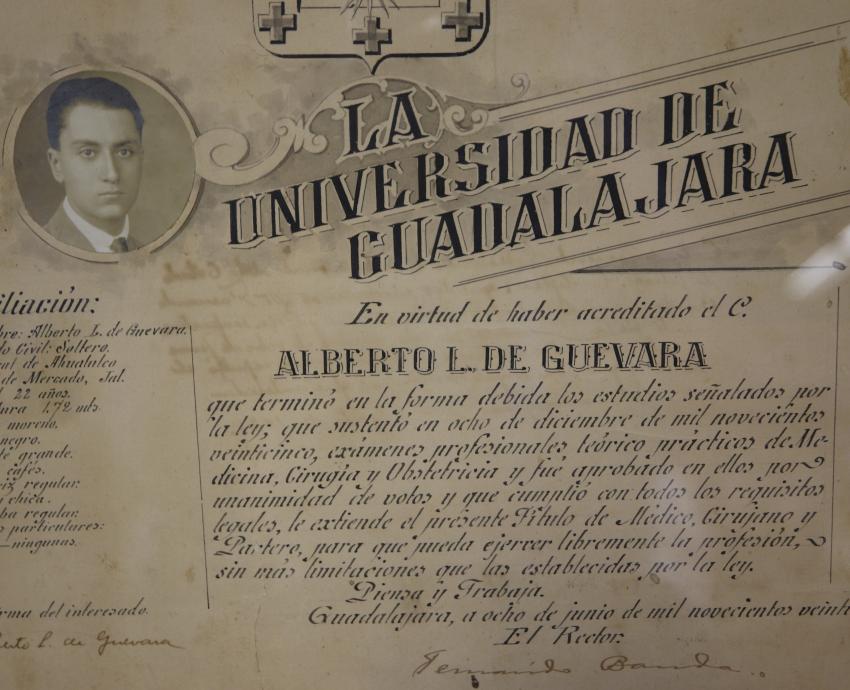 LA
UNIVERSIDAD DE
GUADALAJARA
iliación:
bre: Alberto L. de Guevara.
do Civil: Soltero.
al de Ahualulco
de Mercado, Jal.
22 años.
tura 1.72 mts.
moreno.
negro.
te grande.
cafés.
iz regular.
chica.
ba regular.
s particulares:
ningunas.
irma del interesado.
berto L. de Guevara
En virtud de haber acreditado el C.
ALBERTO L. DE GUEVARA
que terminó en la forma debida los estudios señalados por
la ley; que sustentó en ocho de diciembre de mil novecientos
veinticinco, exámenes profesionales teórico prácticos de Me-
dicina, Cirugía y Obstetricia y fué aprobado en ellos por
unanimidad de votos y que cumplió con todos los requisitos
legales, le extiende el presente Título de Médico, Cirujano y
Partero, para que pueda ejercer libremente la profesión,
sin más limitaciones que las establecidas por la ley.
Piensa y Trabaja.
Guadalajara, a ocho de junio de mil novecientos veint
El Rector.
Fernando Banda